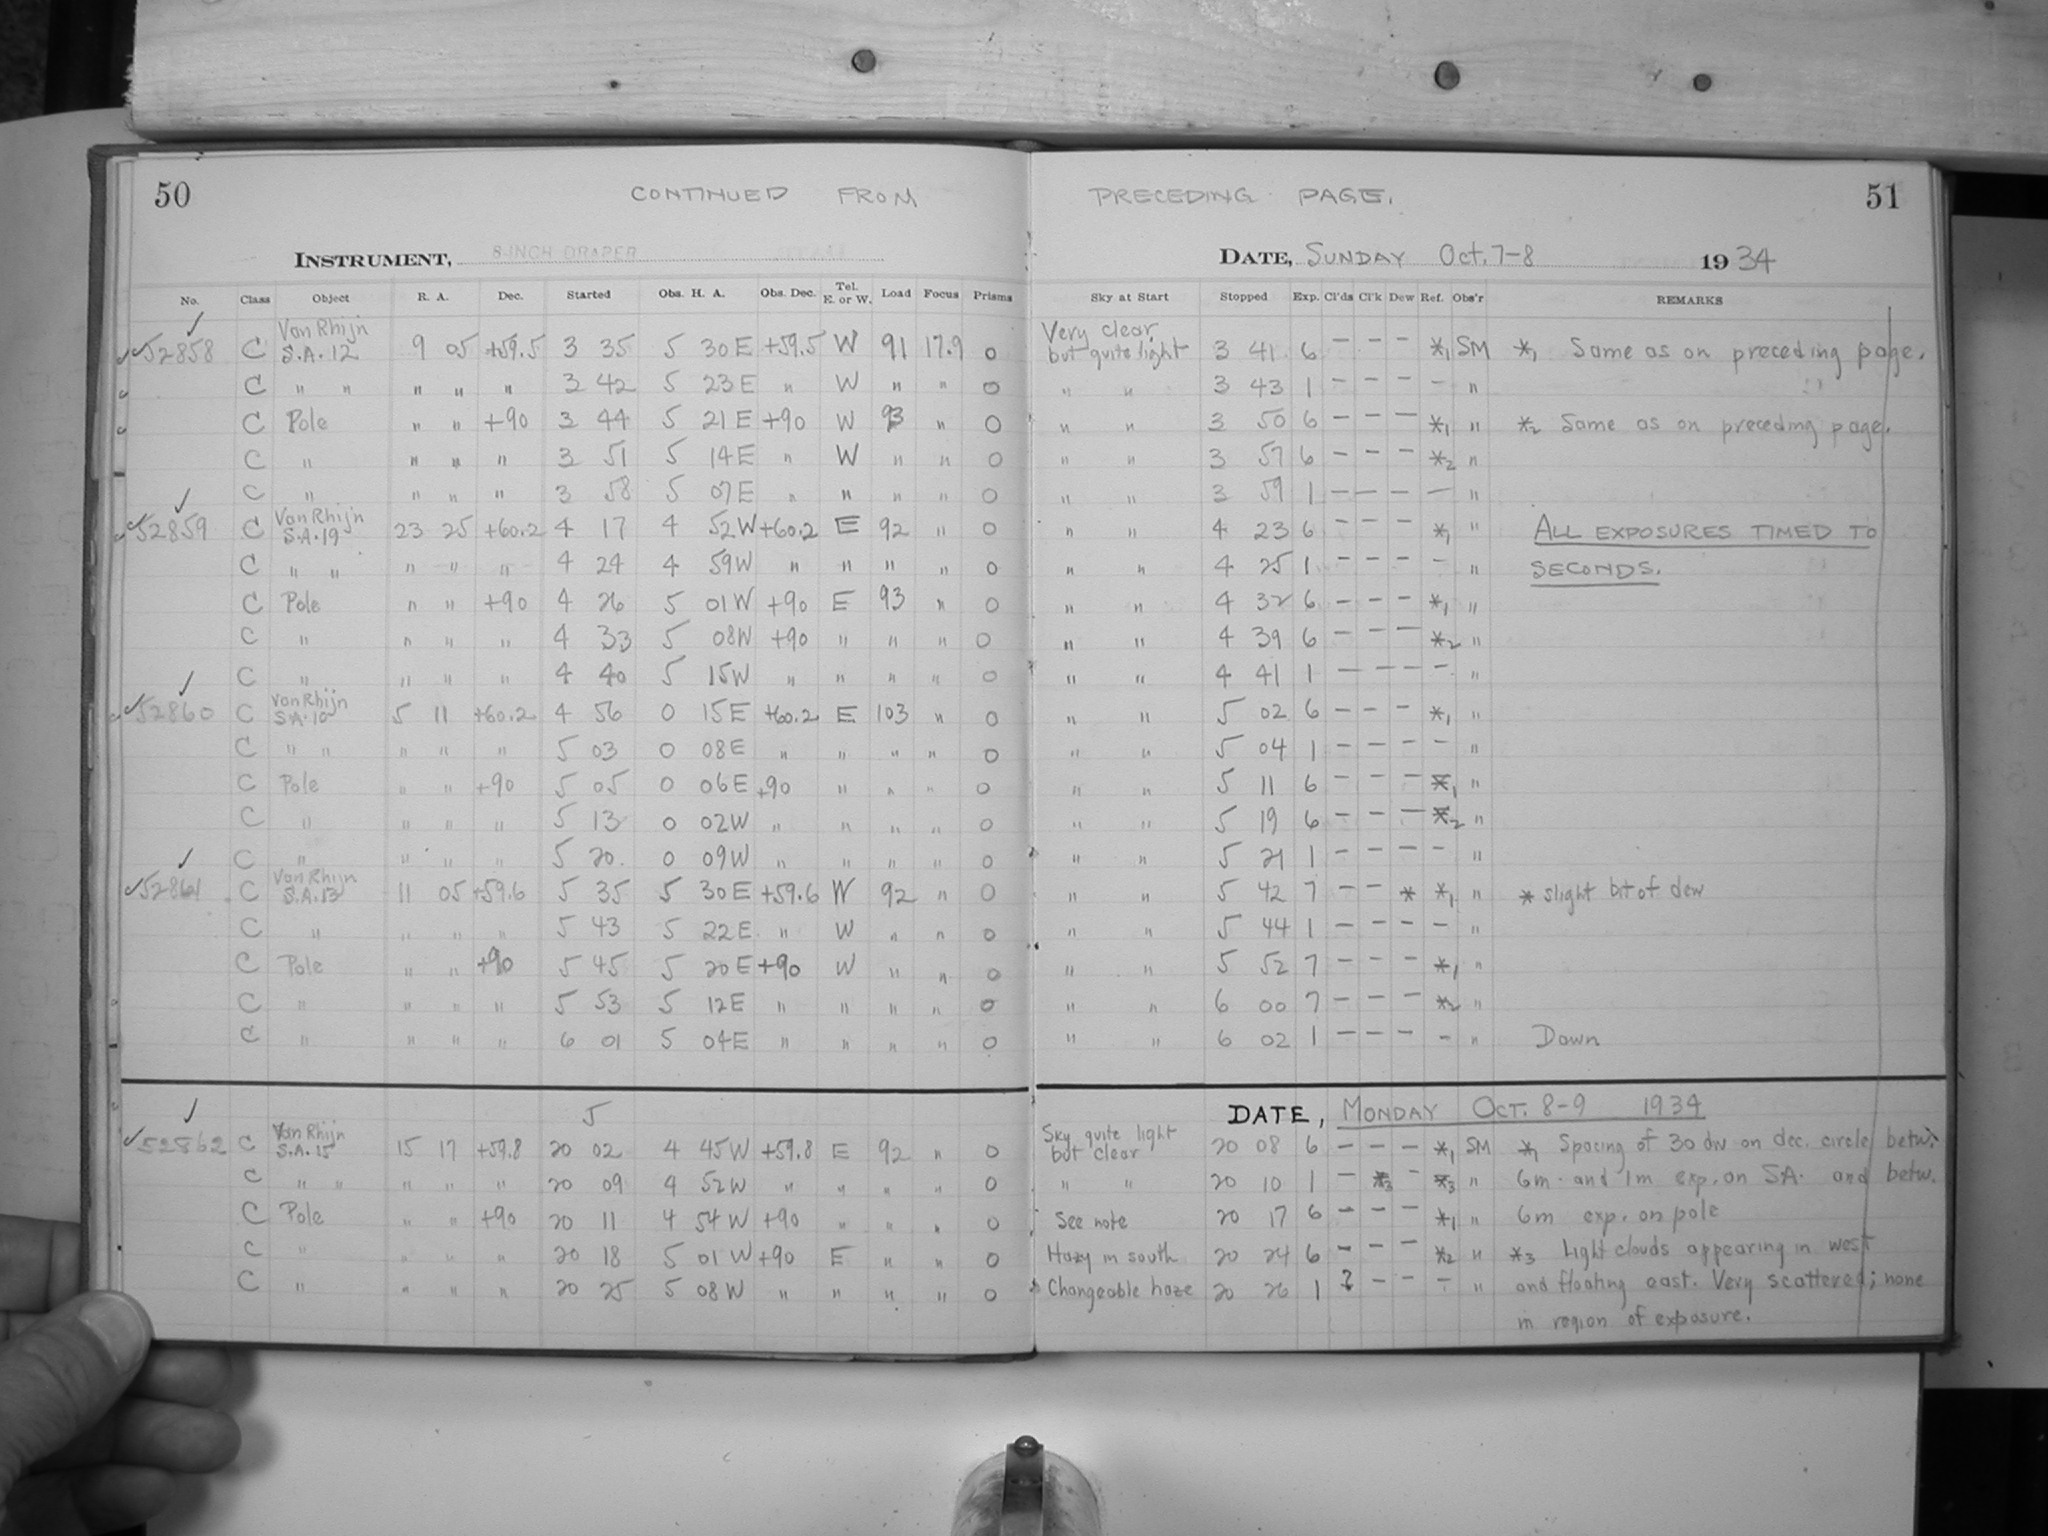 50 CONTINUED FROM PRECEDING PAGE. 51
INSTRUMENT, 8-INCH DRAPER DATE, SUNDAY Oct. 7-8 1934
No. Class Object R. A. Dec. Started Obs. H. A. Obs. Dec. Tel. E. or W. Load Focus Prisms Sky at Start Stopped Exp. Cl'ds Cl'k Dew Ref. Obs'r REMARKS
✓
✓52858 C Van Rhijn S.A. 12 9 05 +59.5 3 35 5 30E +59.5 W 91 17.9 0 Very clear but quite light 3 41 6 — — — *1 SM *1 Same as on preceding page.
C " " " " " 3 42 5 23E " W " " 0 " " 3 43 1 — — — — "
C Pole " " +90 3 44 5 21E +90 W 93 " 0 " " 3 50 6 — — — *1 " *2 Same as on preceding page.
C " " " " 3 51 5 14E " W " " 0 " " 3 57 6 — — — *2 "
C " " " " 3 58 5 07E " " " " 0 " " 3 59 1 — — — — "
✓
✓52859 C Van Rhijn S.A. 19 23 25 +60.2 4 17 4 52W +60.2 E 92 " 0 " " 4 23 6 — — — *1 " ALL EXPOSURES TIMED TO
C " " " " " 4 24 4 59W " " " " 0 " " 4 25 1 — — — — " SECONDS.
C Pole " " +90 4 26 5 01W +90 E 93 " 0 " " 4 32 6 — — — *1 "
C " " " " 4 33 5 08W +90 " " " 0 " " 4 39 6 — — — *2 "
C " " " " 4 40 5 15W " " " " 0 " " 4 41 1 — — — — "
✓
✓52860 C Van Rhijn S.A. 10 5 11 +60.2 4 56 0 15E +60.2 E 103 " 0 " " 5 02 6 — — — *1 "
C " " " " " 5 03 0 08E " " " " 0 " " 5 04 1 — — — — "
C Pole " " +90 5 05 0 06E +90 " " " 0 " " 5 11 6 — — — *1 "
C " " " " 5 13 0 02W " " " " 0 " " 5 19 6 — — — *2 "
C " " " " 5 20. 0 09W " " " " 0 " " 5 21 1 — — — — "
✓
✓52861 C Van Rhijn S.A. 13 11 05 +59.6 5 35 5 30E +59.6 W 92 " 0 " " 5 42 7 — — * *1 " * slight bit of dew
C " " " " 5 43 5 22E " W " " 0 " " 5 44 1 — — — — "
C Pole " " +90 5 45 5 20E +90 W " " 0 " " 5 52 7 — — — *1 "
C " " " " 5 53 5 12E " " " " 0 " " 6 00 7 — — — *2 "
C " " " " 6 01 5 04E " " " " 0 " " 6 02 1 — — — — " Dawn
✓ J DATE, MONDAY OCT. 8-9 1934
✓52862 C Van Rhijn S.A. 15 15 17 +59.8 20 02 4 45W +59.8 E 92 " 0 Sky quite light but clear 20 08 6 — — — *1 SM *1 Spacing of 30 div on dec. circle betw.
C " " " " " 20 09 4 52W " " " " 0 " " 20 10 1 — *3 — *3 " 6m. and 1m exp. on S.A. and betw.
C Pole " " +90 20 11 4 54W +90 " " " 0 See note 20 17 6 — — — *1 " 6m exp. on pole
C " " " " 20 18 5 01W +90 E " " 0 Hazy in south 20 24 6 — — — *2 " *3 Light clouds appearing in west
C " " " " 20 25 5 08W " " " " 0 Changeable haze 20 26 1 ? — — — " and floating east. Very scattered; none
in region of exposure.